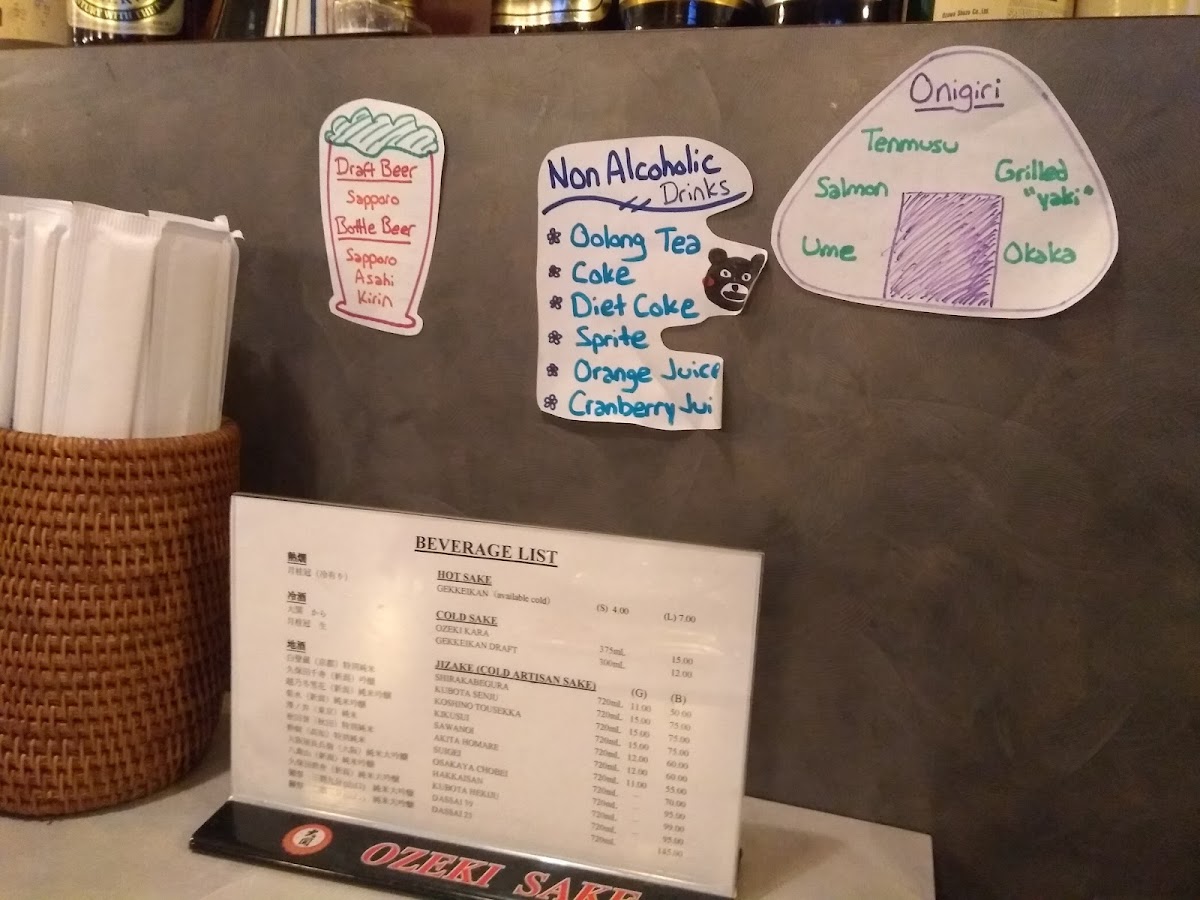 Draft Beer
Sapporo
Bottle Beer
Sapporo
Asahi
Kirin
Non Alcoholic
Drinks
Oolong Tea
Coke
Diet Coke
Sprite
Orange Juice
Cranberry Jui
Onigiri
Tenmusu
Salmon
Grilled
"yaki"
Ume
Okaka
BEVERAGE LIST
熱燗 HOT SAKE
月桂冠 GEKKEIKAN (available cold) (S) 4.00 (L) 7.00
冷酒 COLD SAKE
大関 から OZEKI KARA 375mL 15.00
月桂冠 生 GEKKEIKAN DRAFT 300mL 12.00
地酒 JIZAKE (COLD ARTISAN SAKE) (G) (B)
SHIRAKABEGURA 720mL 11.00 50.00
KUBOTA SENJU 720mL 15.00 75.00
KOSHINO TOUSEKKA 720mL 15.00 75.00
KIKUSUI 720mL 15.00 75.00
SAWANOI 720mL 12.00 60.00
AKITA HOMARE 720mL 12.00 60.00
SUIGEI 720mL 11.00 55.00
OSAKAYA CHOBEI 720mL 70.00
HAKKAISAN 720mL 95.00
KUBOTA HEKIJU 720mL 99.00
DASSAI 39 720mL 95.00
DASSAI 23 720mL 145.00
大関
OZEKI SAKE